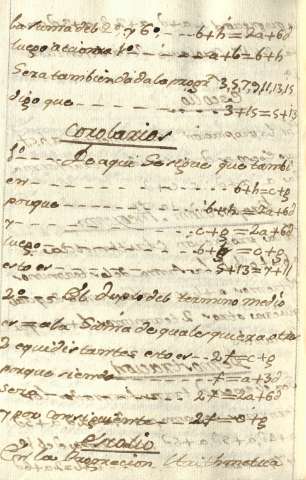 la suma del 2º y 6º --- b+h = 2a+6d
luego axioma 1º --- a+b = b+h
Sera tambien dada la progrⁿ 3,5,7,9,11,13,15
digo que --- 3+15 = 5+13
Corolarios
1º --- De aqui se sigue que tambi
en --- b+h = c+g
porque --- b+h = 2a+6d
y --- c+g = 2a+6d
luego --- b+h = c+g
esto es --- 5+13 = 7+11
2º El duplo del termino medio
es a la Suma de qualesquiera otros
2 equidistantes esto es -- 2f = c+g
porque siendo --- f = a+3d
sera --- 2f = 2a+6d
y por consiguiente --- 2f = c+g
escolio
En la Progrecion Arithmetica